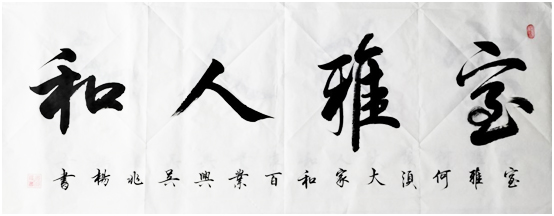 室雅人和
室雅何須大家和百業興吳兆楊書